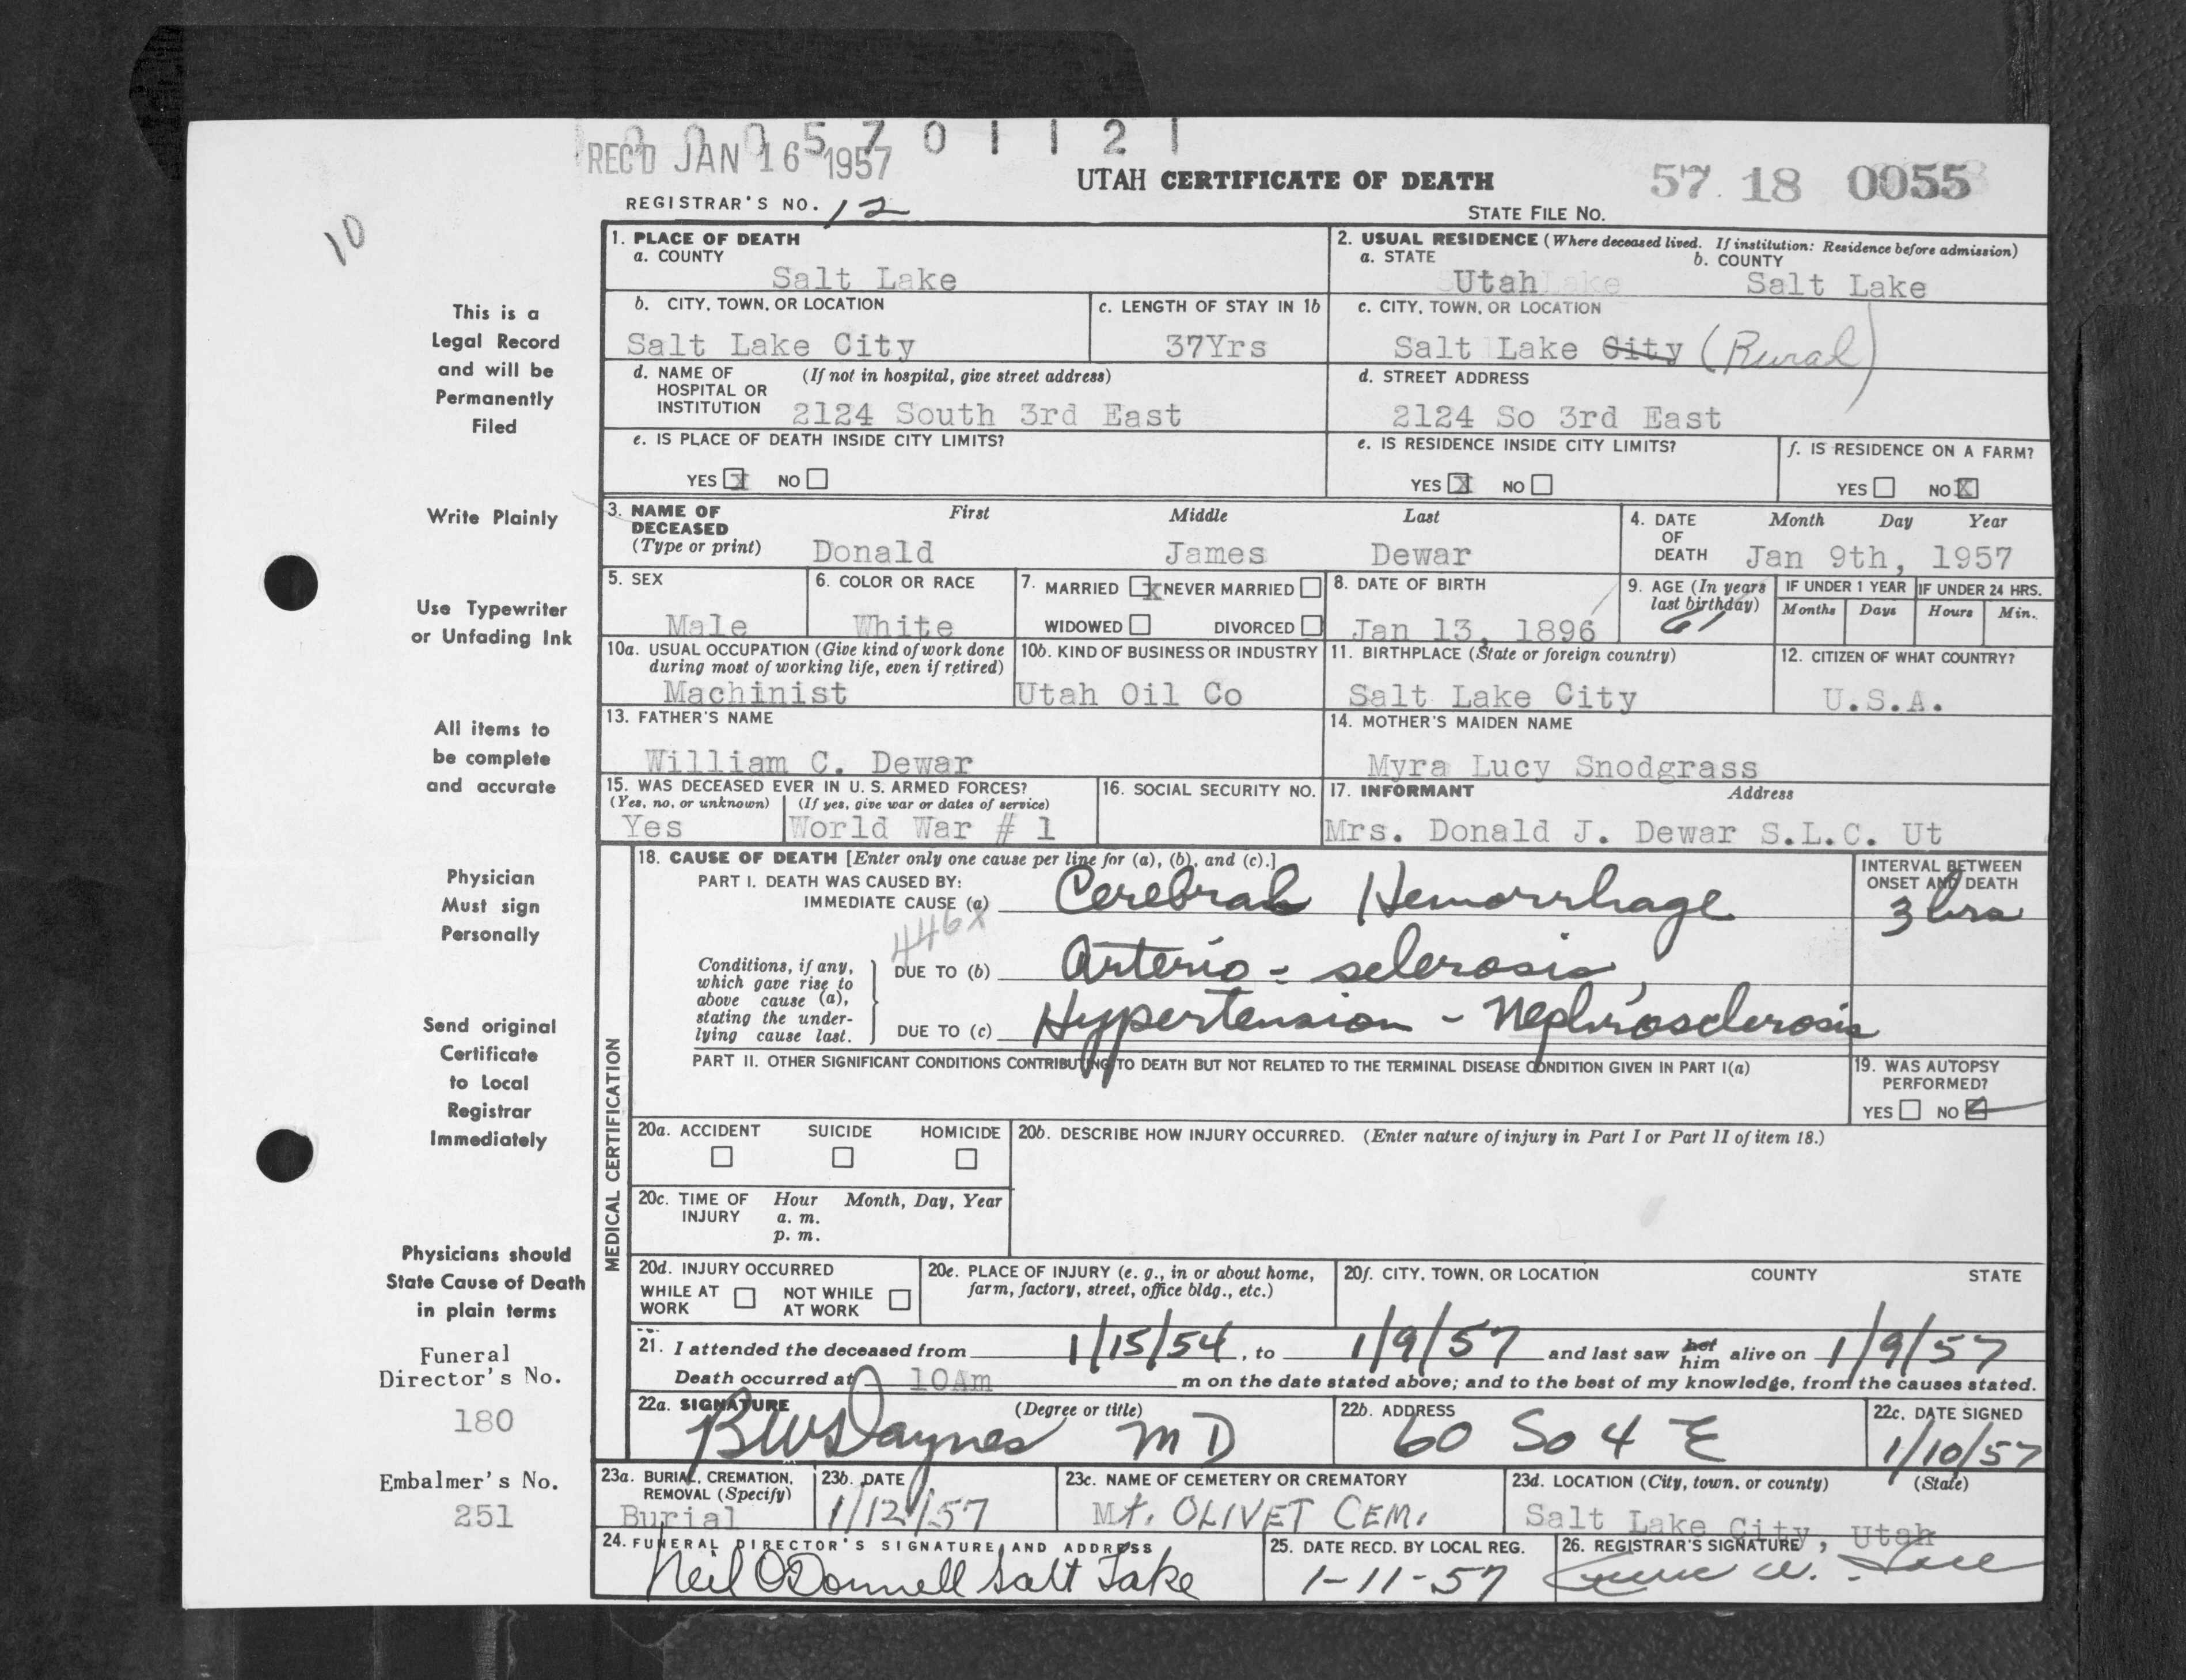 0 0 0 5 7 0 1 1 2 1
REC'D JAN 16 1957
UTAH CERTIFICATE OF DEATH
57 18 0055
REGISTRAR'S NO. 12
STATE FILE NO.
10
1. PLACE OF DEATH
a. COUNTY
Salt Lake
2. USUAL RESIDENCE (Where deceased lived. If institution: Residence before admission)
a. STATE
b. COUNTY
Utah
Salt Lake
b. CITY, TOWN, OR LOCATION
Salt Lake City
c. LENGTH OF STAY IN 1b
37Yrs
c. CITY, TOWN, OR LOCATION
Salt Lake City (Rural)
d. NAME OF HOSPITAL OR INSTITUTION (If not in hospital, give street address)
2124 South 3rd East
d. STREET ADDRESS
2124 So 3rd East
e. IS PLACE OF DEATH INSIDE CITY LIMITS?
YES X NO
e. IS RESIDENCE INSIDE CITY LIMITS?
YES X NO
f. IS RESIDENCE ON A FARM?
YES NO X
3. NAME OF DECEASED (Type or print)
First Middle Last
Donald James Dewar
4. DATE OF DEATH
Month Day Year
Jan 9th, 1957
5. SEX
Male
6. COLOR OR RACE
White
7. MARRIED X NEVER MARRIED
WIDOWED DIVORCED
8. DATE OF BIRTH
Jan 13, 1896
9. AGE (In years last birthday)
61
IF UNDER 1 YEAR
Months Days
IF UNDER 24 HRS.
Hours Min.
10a. USUAL OCCUPATION (Give kind of work done during most of working life, even if retired)
Machinist
10b. KIND OF BUSINESS OR INDUSTRY
Utah Oil Co
11. BIRTHPLACE (State or foreign country)
Salt Lake City
12. CITIZEN OF WHAT COUNTRY?
U.S.A.
13. FATHER'S NAME
William C. Dewar
14. MOTHER'S MAIDEN NAME
Myra Lucy Snodgrass
15. WAS DECEASED EVER IN U. S. ARMED FORCES?
(Yes, no, or unknown) (If yes, give war or dates of service)
Yes World War # 1
16. SOCIAL SECURITY NO.
17. INFORMANT Address
Mrs. Donald J. Dewar S.L.C. Ut
MEDICAL CERTIFICATION
18. CAUSE OF DEATH [Enter only one cause per line for (a), (b), and (c).]
PART I. DEATH WAS CAUSED BY:
IMMEDIATE CAUSE (a) Cerebral Hemorrhage
INTERVAL BETWEEN ONSET AND DEATH
3 hrs
446X
Conditions, if any, which gave rise to above cause (a), stating the underlying cause last.
DUE TO (b) Arterio-sclerosis
DUE TO (c) Hypertension - Nephrosclerosis
PART II. OTHER SIGNIFICANT CONDITIONS CONTRIBUTING TO DEATH BUT NOT RELATED TO THE TERMINAL DISEASE CONDITION GIVEN IN PART I(a)
19. WAS AUTOPSY PERFORMED?
YES NO
20a. ACCIDENT SUICIDE HOMICIDE
20b. DESCRIBE HOW INJURY OCCURRED. (Enter nature of injury in Part I or Part II of item 18.)
20c. TIME OF INJURY Hour Month, Day, Year
a. m.
p. m.
20d. INJURY OCCURRED
WHILE AT WORK NOT WHILE AT WORK
20e. PLACE OF INJURY (e. g., in or about home, farm, factory, street, office bldg., etc.)
20f. CITY, TOWN, OR LOCATION COUNTY STATE
21. I attended the deceased from 1/15/54, to 1/9/57 and last saw her him alive on 1/9/57
Death occurred at 10Am m on the date stated above; and to the best of my knowledge, from the causes stated.
22a. SIGNATURE (Degree or title)
B W Daynes M D
22b. ADDRESS
60 So 4 E
22c. DATE SIGNED
1/10/57
23a. BURIAL, CREMATION, REMOVAL (Specify)
Burial
23b. DATE
1/12/57
23c. NAME OF CEMETERY OR CREMATORY
Mt. OLIVET CEM.
23d. LOCATION (City, town, or county) (State)
Salt Lake City, Utah
24. FUNERAL DIRECTOR'S SIGNATURE AND ADDRESS
Neil O'Donnell Salt Lake
25. DATE RECD. BY LOCAL REG.
1-11-57
26. REGISTRAR'S SIGNATURE
This is a
Legal Record
and will be
Permanently
Filed
Write Plainly
Use Typewriter
or Unfading Ink
All items to
be complete
and accurate
Physician
Must sign
Personally
Send original
Certificate
to Local
Registrar
Immediately
Physicians should
State Cause of Death
in plain terms
Funeral
Director's No.
180
Embalmer's No.
251